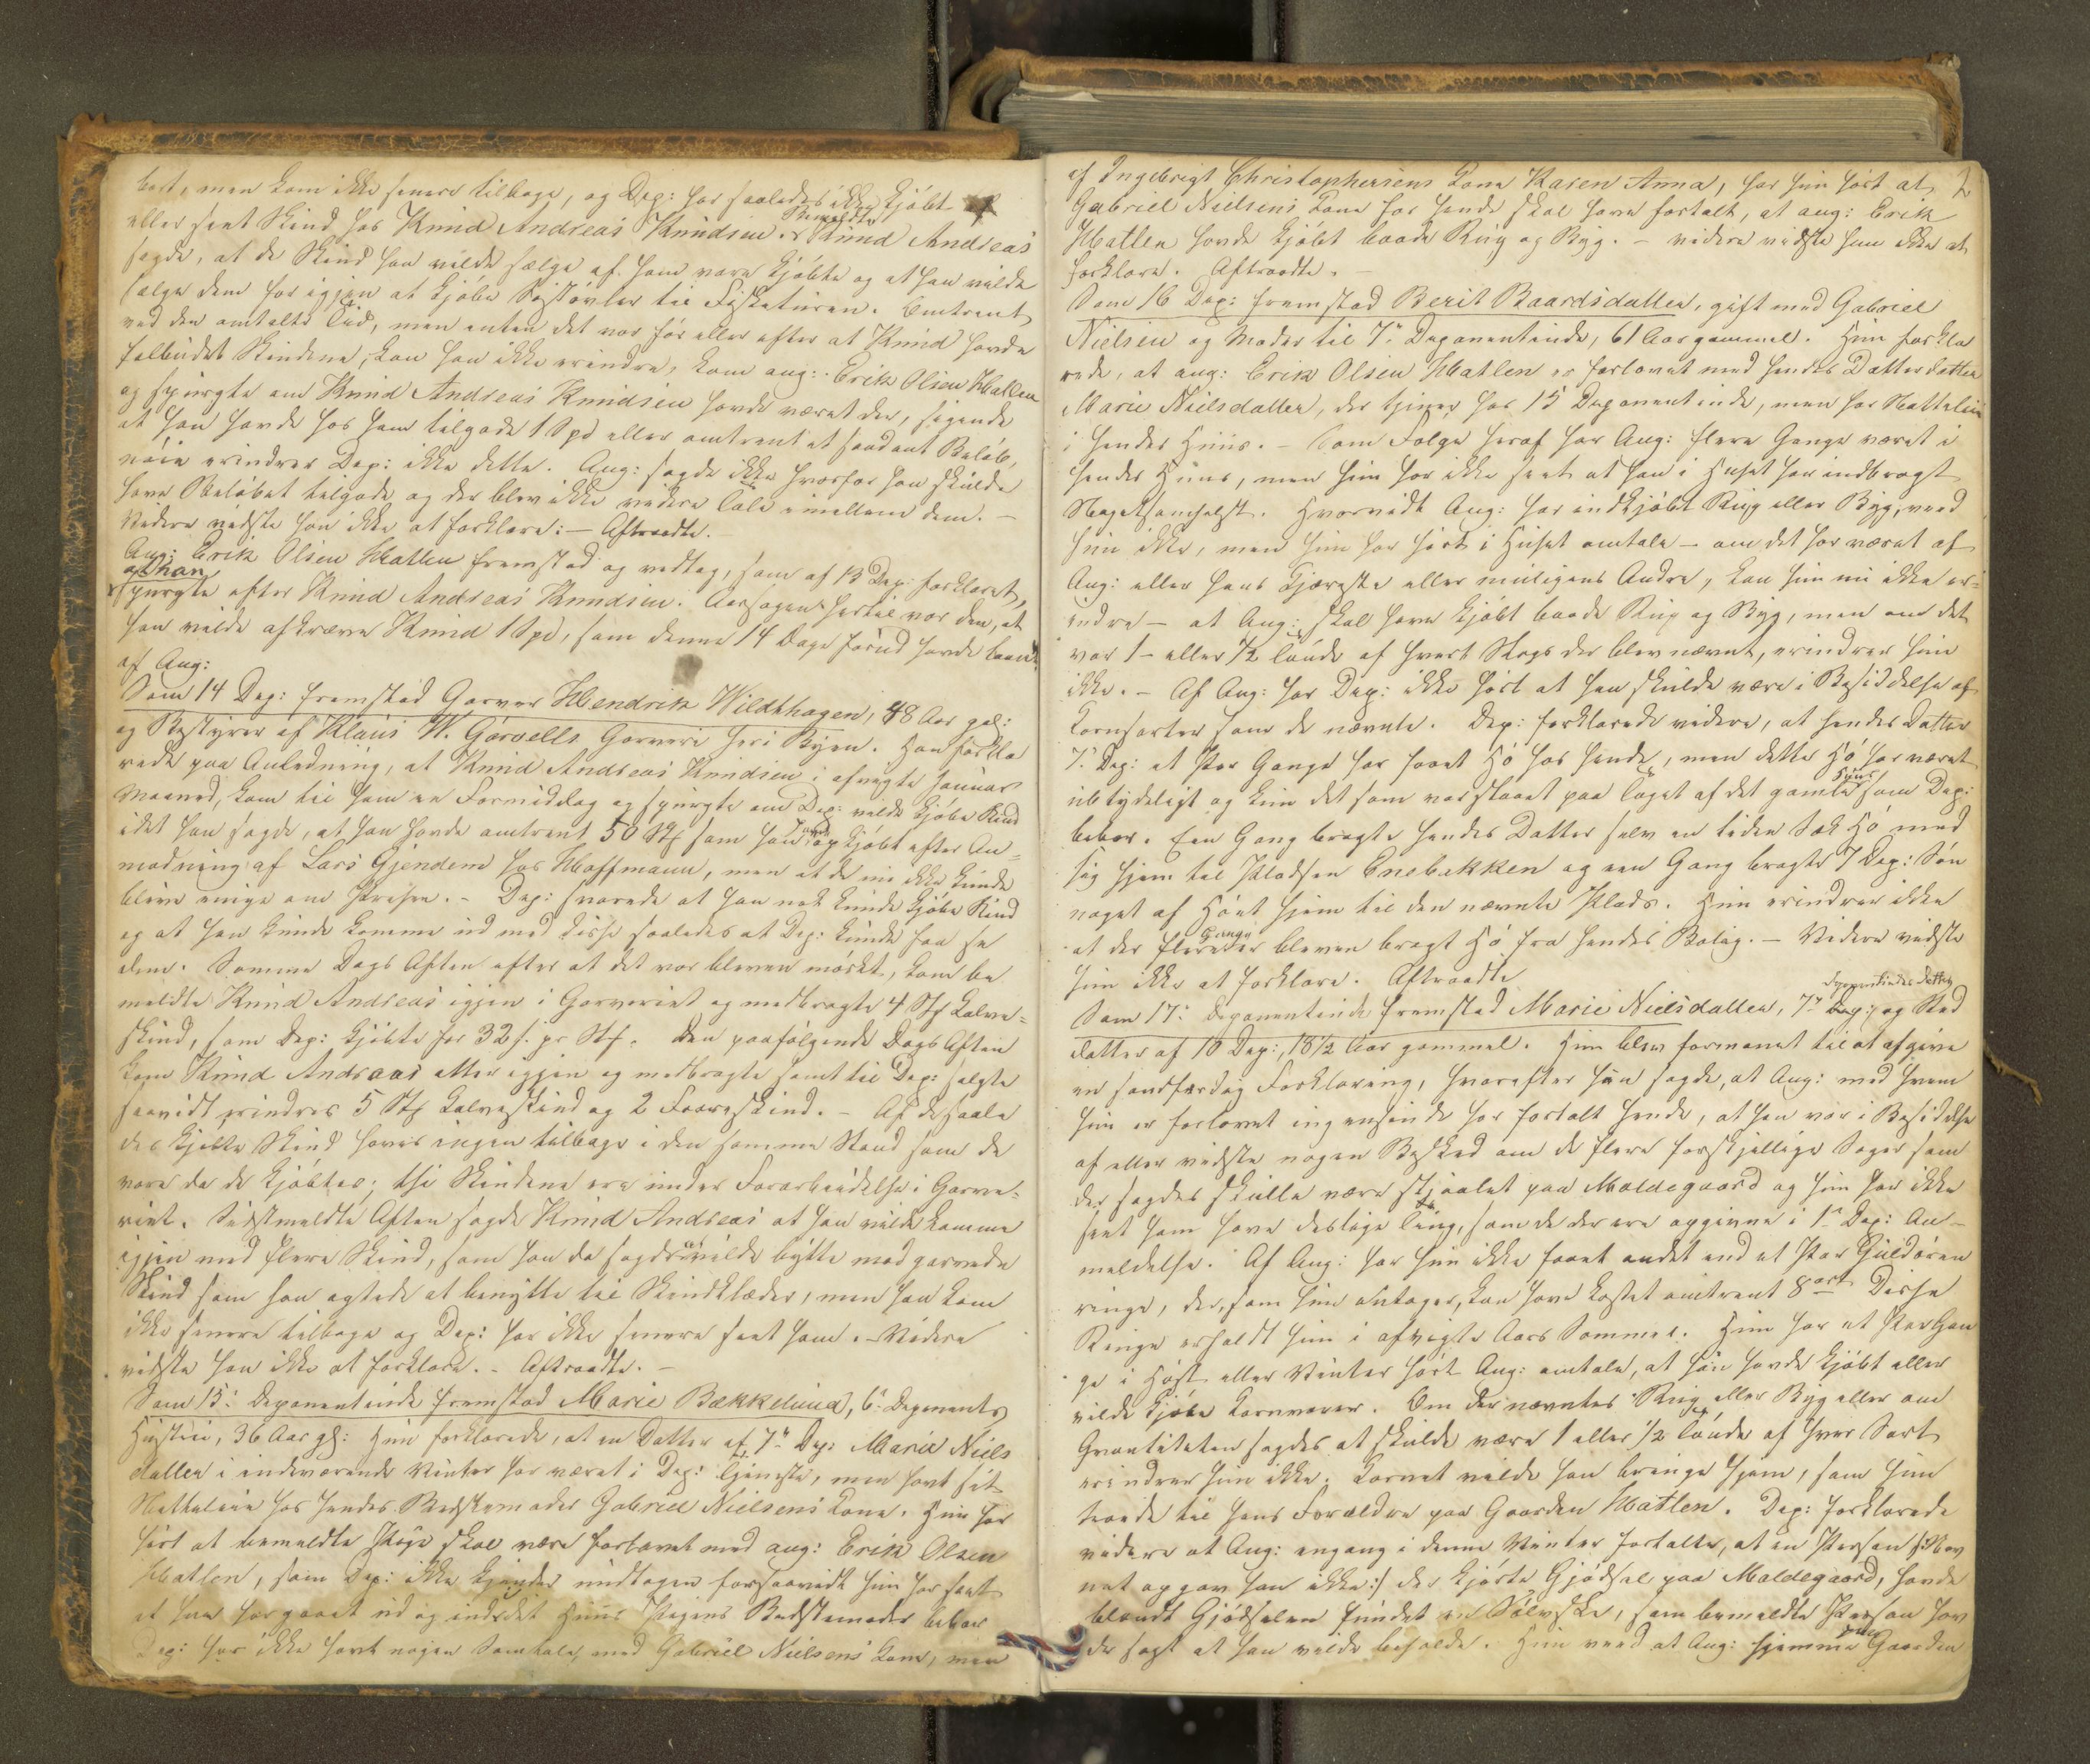 bort, men kom ikke senere tilbage, og Dep: har saaledes ikke kjöbt
eller seet Skind hos Knud Andreas Knudsen. Bemeldte Knud Andreas
sagde, at de Skind han vilde sælge af ham vare kjöbte og at han vilde
sælge dem for igjen at kjöbe Söstövler til Fisketuren. Omtrent
ved den omtalte Tid, men enten det var för eller efter at Knud havde
falbudet Skindene, kan han ikke erindre, kom ang: Erik Olsen Hatlen
og spurgte om Knud Andreas Knudsen havde været der, sigende
at han havde hos ham tilgode 1 Spd eller omtrent et saadant Belöb,
nöie erindrer Dep: ikke dette. Ang: sagde ikke hvorfor han skulde
have Belöbet tilgode og der blev ikke videre Tale imellem dem. –
Videre vidste han ikke at forklare: – Aftraadte.
Ang: Erik Olsen Hatlen fremstod og vedtog, som af 13 Dep: forklaret,
at han
spurgte efter Knud Andreas Knudsen. Aarsagen hertil var den, at
han vilde afkræve Knud 1 Spd, som denne 14 Dage forud havde laant
af Ang:
Som 14 Dep: fremstod Garver Hendrik Wildthagen, 48 Aar gal:
og Bestyrer af Klaus W. Görvells Garveri her i Byen. Han forkla
rede paa Anledning, at Knud Andreas Knudsen i afvigte Januar
Maaned, kom til ham en Formiddag og spurgte om Dep: vilde kjöbe Skind
idet han sagde, at han havde omtrent 50 Stk som han havde opkjöbt efter An-
modning af Lars Gjendem hos Hoffmann, men at de nu ikke kunde
blive enige om Prisen. – Dep: svarede at han nok kunde kjöbe Skind
og at han kunde komme ud med disse saaledes at Dep: kunde faa se
dem. Samme Dags Aften efter at det var bleven mörkt, kom be
meldte Knud Andreas igjen i Garveriet og medbragte 4 Stk Kalve-
skind, som Dep: kjöbte for 32 s. pr Stk. Den paafölgende Dags Aften
kom Knud Andreas atter igjen og medbragte samt til Dep: solgte
saavidt erindres 5 Stk Kalveskind og 2 Faareskind. – Af de saale
des kjöbte Skind haves ingen tilbage i den samme Stand som de
vare da de kjöbtes; thi Skindene ere under Forarbeidelse i Garve-
riet. Sidstmeldte Aften sagde Knud Andreas at han vilde komme
igjen med flere Skind, som han da sagde at vilde bytte mod garvede
Skind som han agtede at benytte til Skindklæder, men han kom
ikke senere tilbage og Dep: har ikke senere seet ham. – Videre
vidste han ikke at forklare. – Aftraadte. –
Som 15: Deponentinde fremstod Marie Bækkelund, 6: Deponents
Hustru, 36 Aar gl: Hun forklarede, at en Datter af 7de Dep: Marie Niels
datter i indeværende Vinter har været i Dep: Tjeneste, men havt sit
Natteleie hos hendes Bedstemoder Gabriel Nielsens Kone. Hun har
hört at bemeldte Pige skal være forlovet med ang: Erik Olsen
Hatlen, som Dep: ikke kjender undtagen forsaavidt hun har seet
at han har gaaet ud og ind i det Huus Pigens Bedstemoder bebor
Dep: har ikke havt nogen Samtale med Gabriel Nielsens Kone, men
2
af Ingebrigt Christophersens Kone Karen Anna, har hun hört at
Gabriel Nielsens Kone for hende skal have fortalt, at ang: Erik
Hatlen havde kjöbt baade Rug og Byg. – videre vidste hun ikke at
forklare. Aftraadte. –
Som 16 Dep: fremstod Berit Baardsdatter, gift med Gabriel
Nielsen og Moder til 7de Deponentinde, 61 Aar gammel. Hun forkla
rede, at ang: Erik Olsen Hatlen er forlovet med hendes Datterdatter
Marie Nielsdatter, der tjener hos 15 Deponentinde, men har Natteleie
i hendes Huus. – Som Fölge heraf har Ang: flere Gange været i
hendes Huus, men hun har ikke seet at han i Huset har indbragt
Nogetsomhelst. Hvorvidt Ang: har indkjöbt Rug eller Byg, veed
hun ikke, men hun har hört i Huset omtale – om det har været af
Ang: eller hans Kjæreste eller muligens Andre, kan hun nu ikke er-
indre – at Ang: skal have kjöbt baade Rug og Byg, men om det
var 1 – eller 1/2 Tönde af hvert Slags der blev nævnt, erindrer hun
ikke. – Af Ang: har Dep: ikke hört at han skulde være i Besiddelse af
Kornsorter som de nævnte. Dep: forklarede videre, at hendes Datter
7. Dep: et Par Gange har faaet Hö hos hende, men dette Hö har været
ubtydeligt og kun det som var staaet paa Taget af det gamle Huus som Dep:
bebor. Een Gang bragte hendes Datter selv en liden Sæk Hö med
sig hjem til Pladsen Enebakken og een Gang bragte 7 Dep: Sön
noget af Höet hjem til den nævnte Plads. Hun erindrer ikke
at der flere Gange er bleven bragt Hö fra hendes Bolig. – Videre vidste
hun ikke at forklare. Aftraadte
Som 17: Deponentinde fremstod Marie Nielsdatter, 7de Deponentindes Datter og Sted
datter af 10 Dep:, 18 1/2 Aar gammel. Hun blev formanet til at afgive
en sandfærdig Forklaring, hvorefter hun sagde, at Ang: med hvem
hun er forlovet ingensinde har fortalt hende, at han var i Besidelse
af eller vidste nogen Besked om de flere forskjellige Sager som
der sagdes skulle være stjaalet paa Moldegaard og hun har ikke
seet ham have deslige Ting, som de der ere opgivne i 1ste Dep: An-
meldelse. Af Ang: har hun ikke faaet andet end et Par Guldören
ringe, der, som hun antager, kan have kostet omtrent 8 ort. Disse
Ringe erholdt hun i afvigte Aars Sommer. Hun har et Par Gan
ge i Höst eller Vinter hört Ang: omtale, at han havde kjöbt eller
vilde kjöbe Kornvarer. Om der nævntes Rug eller Byg eller om
Qvantiteten sagdes at skulde være 1 eller 1/2 Tönde af hver Sort
erindrer hun ikke. Kornet vilde han bringe hjem, som hun
troede til hans Forældre paa Gaarden Hatlen. Dep: forklarede
videre at Ang: engang i denne Vinter fortalte, at en Person /: Nav
net opgav han ikke :/ der kjörte Gjödsel paa Moldegaard, havde
blandt Gjödselen fundet en Sölvske, som bemeldte Person hav
de sagt at han vilde beholde. Hun veed at Ang: hjemme paa Gaarden